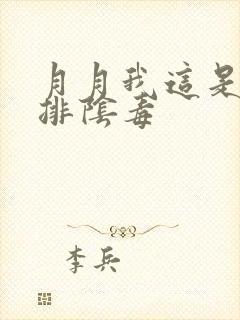 月月我這是
排陰毒
李兵